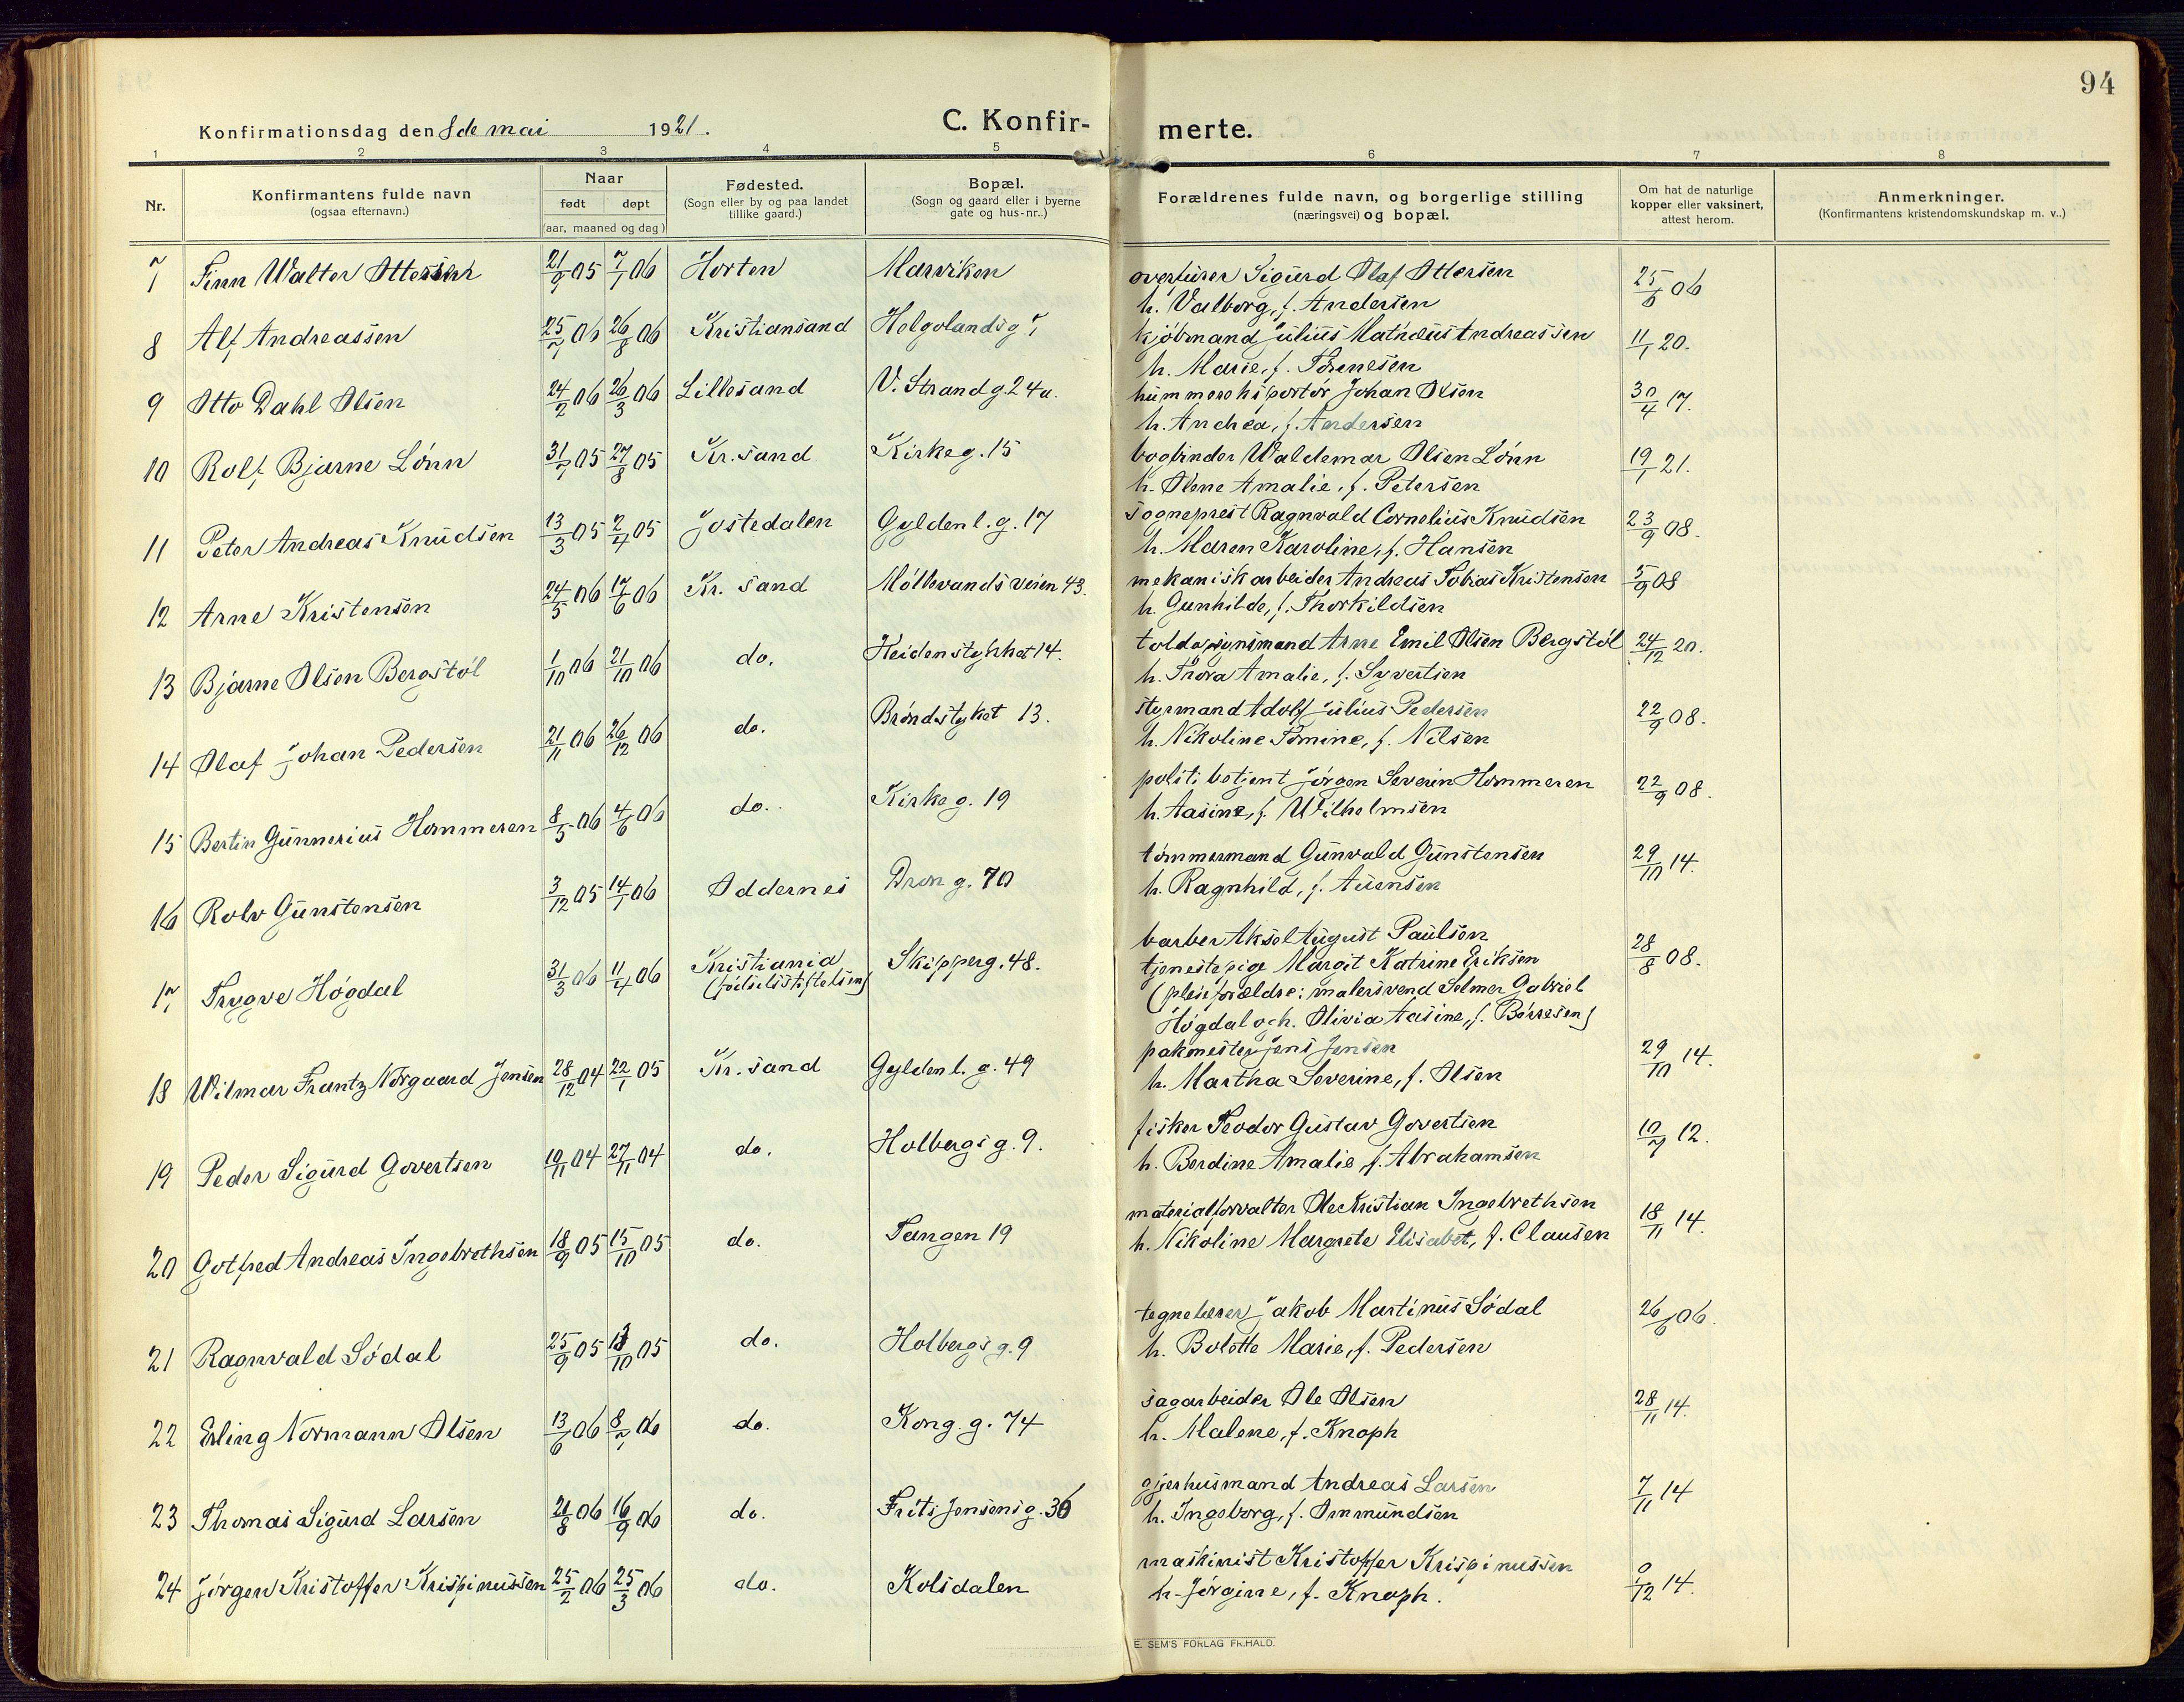 94
Konfirmationsdag den 8de mai 1921.
C. Konfir-
merte.
1 2 3 4 5 6 7 8
Nr.
Konfirmantens fulde navn
(ogsaa efternavn.)
Naar
født døpt
(aar, maaned og dag)
Fødested.
(Sogn eller by og paa landet
tillike gaard.)
Bopæl.
(Sogn og gaard eller i byerne
gate og hus-nr..)
Forældrenes fulde navn, og borgerlige stilling
(næringsvei) og bopæl.
Om hat de naturlige
kopper eller vaksinert,
attest herom.
Anmerkninger.
(Konfirmantens kristendomskundskap m. v..)
7 Finn Walter Ottersen 21/9 05 7/1 06 Horten Marviken Sigurd Olaf Ottersen 25/6 06
h. Valborg, f. Andersen
8 Alf Andreassen 25/7 06 26/8 06 Kristiansand Helgolandsg 7 kjøbmand Julius Mathæus Andreassen 11/1 20.
h. Marie, f. Tønnesen
9 Otto Dahl Olsen 24/2 06 26/3 06 Lillesand V. Strandg. 24a. Johan Olsen 30/4 17.
h. Andrea, f. Andersen
10 Rolf Bjarne Lønn 31/7 05 27/8 05 Kr.sand Kirkeg. 15 bogbinder Waldemar Olsen Lønn 19/1 21.
h. Olene Amalie, f. Petersen
11 Peter Andreas Knudsen 13/3 05 2/4 05 Jostedalen Gyldenl. g. 17 sogneprest Ragnvald Cornelius Knudsen 23/9 08.
h. Maren Karoline, f. Hansen
12 Arne Kristensen 24/5 06 17/6 06 Kr. sand Møllevandsveien 43. mekanisk arbeider Andreas Tobias Kristensen 5/9 08
h. Gunhilde, f. Thorkildsen
13 Bjarne Olsen Bergstøl 1/10 06 21/10 06 do. Heidenstykket 14. toldopsynsmand Arne Emil Olsen Bergstøl 24/12 20.
h. Thora Amalie, f. Syvertsen
14 Olaf Johan Pedersen 21/11 06 26/12 06 do. Brøndstyket 13. styrmand Adolf Julius Pedersen 22/9 08.
h. Nikoline Tomine, f. Nilsen
15 Bertin Gunnerius Hommeren 8/5 06 4/6 06 do. Kirkeg. 19 politibetjent Jørgen Severin Hommeren 22/9 08.
h. Aasine, f. Wilhelmsen
16 Rolv Gunstensen 3/12 05 14/1 06 Oddernes Dron g. 70 tømmermand Gunvald Gunstensen 29/10 14.
h. Ragnhild, f. Auensen
17 Trygve Høgdal 31/3 06 11/4 06 Kristiania Skipperg. 48. barber Aksel August Paulsen 28/8 08.
(fødselsstiftelsen) tjenestepige Margit Katrine Eriksen
(pleieforældre: malersvend Selmer Gabriel
Høgdal og h. Olivia Aasine, f. Børresen)
18 Wilmar Frantz Nørgaard Jensen 28/12 04 22/1 05 Kr. sand Gyldenl. g. 49 pakmester Jens Jensen 29/10 14.
h. Martha Severine, f. Olsen
19 Peder Sigurd Govertsen 10/11 04 27/11 04 do. Holbergs g. 9. fisker Teodor Gustav Govertsen 10/7 12.
h. Berdine Amalie, f. Abrahamsen
20 Gotfred Andreas Ingebrethsen 18/9 05 15/10 05 do. Tangen 19 materialforvalter Ole Kristian Ingebrethsen 18/11 14.
h. Nikoline Margrete Elisabet, f. Clausen
21 Ragnvald Sødal 25/9 05 /10 05 do. Holbergs g. 9 tegnelærer Jakob Martinus Sødal 26/6 06.
h. Bolette Marie, f. Pedersen
22 Erling Normann Olsen 13/6 06 8/7 06 do. Kong. g. 74 sagarbeider Ole Olsen 28/11 14.
h. Malene, f. Knoph
23 Thomas Sigurd Larsen 21/8 06 16/9 06 do. Frits Jensens g. 36 gjørhusmand Andreas Larsen 7/11 14
h. Ingeborg, f. Ommundsen
24 Jørgen Kristoffer Krispinussen 25/2 06 25/3 06 do. Kolsdalen maskinist Kristoffer Krispinussen /12 14.
h. Jørgine, f. Knoph.
E. SEM'S FORLAG FR.HALD.